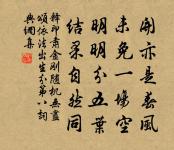 開亦是春風
未免一場空
明明分五葉
結果自然同
釋印肅金剛隨機無盡
頌依法出生分第八詞
典網集